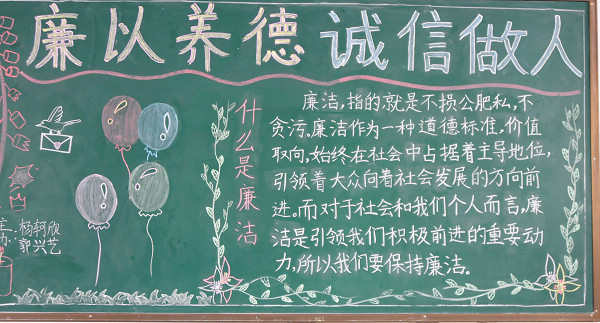 廉以养德 诚信做人
什么是廉洁
廉洁,指的就是不损公肥私,不
贪污。廉洁作为一种道德标准,价值
取向,始终在社会中占据着主导地位,
引领着大众向着社会发展的方向前
进。而对于社会和我们个人而言,廉
洁是引领我们积极前进的重要动
力,所以我们要保持廉洁。
杨轲欣
郭兴艺